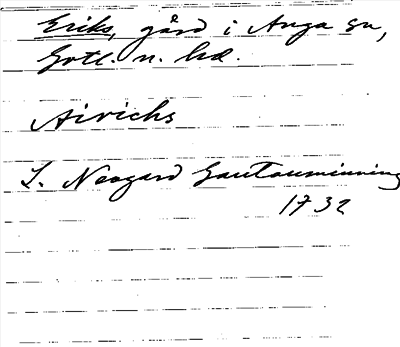 Eriks, gård i Anga sn,
Gotl. n. hd.
Airichs
L. Neogard Gautauminning
1732